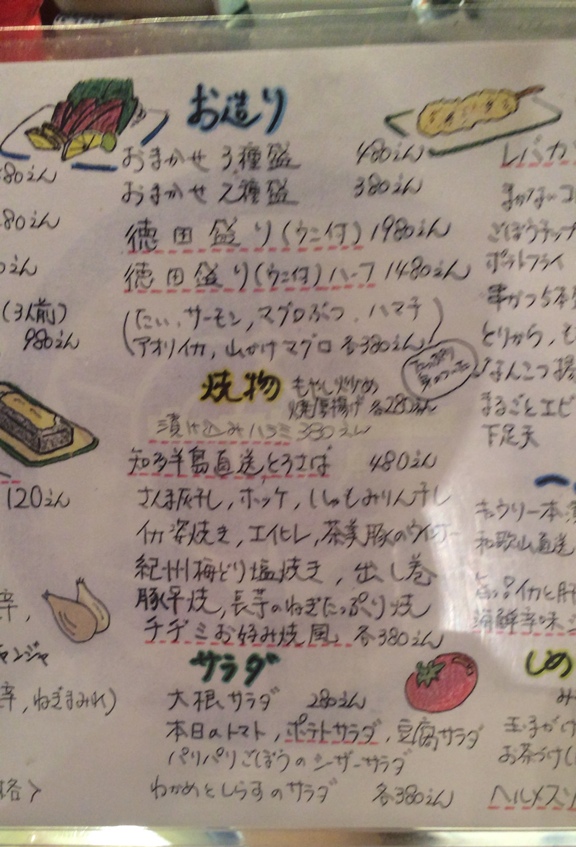 お造り
おまかせ3種盛 480えん
おまかせ2種盛 380えん
徳田盛り(ウニ付) 1980えん
徳田盛り(ウニ付)ハーフ 1480えん
(たい、サーモン、マグロぶつ、ハマチ
アオリイカ、山かけマグロ 各380えん)
焼物
もやし炒め
焼厚揚げ 各280えん
漬け込みハラミ 380えん
知多半島直送とろさば 480えん
さんま灰干し,ホッケ,ししゃもみりん干し
イカ姿焼き,エイヒレ,茶美豚のウインナー
紀州梅どり塩焼き,出し巻
豚平焼,長芋のねぎたっぷり焼
チヂミお好み焼風 各380えん
サラダ
大根サラダ 280えん
本日のトマト,ポテトサラダ,豆腐サラダ
パリパリごぼうのシーザーサラダ
わかめとしらすのサラダ 各380えん
80えん
80えん
えん
(3人前)
980えん
120えん
辛,
チャンジャ
辛,ねぎまみれ)
格>
レバカツ
まかない
ごぼうチップ
ポテトフライ
串かつ5本
とりから,も
なんこつ揚
まるごとエビ
下足天
キュウリ一本
和歌山直送
イカと肝
海鮮辛味
しめ
玉子かけ
お茶づけ
ヘルメス